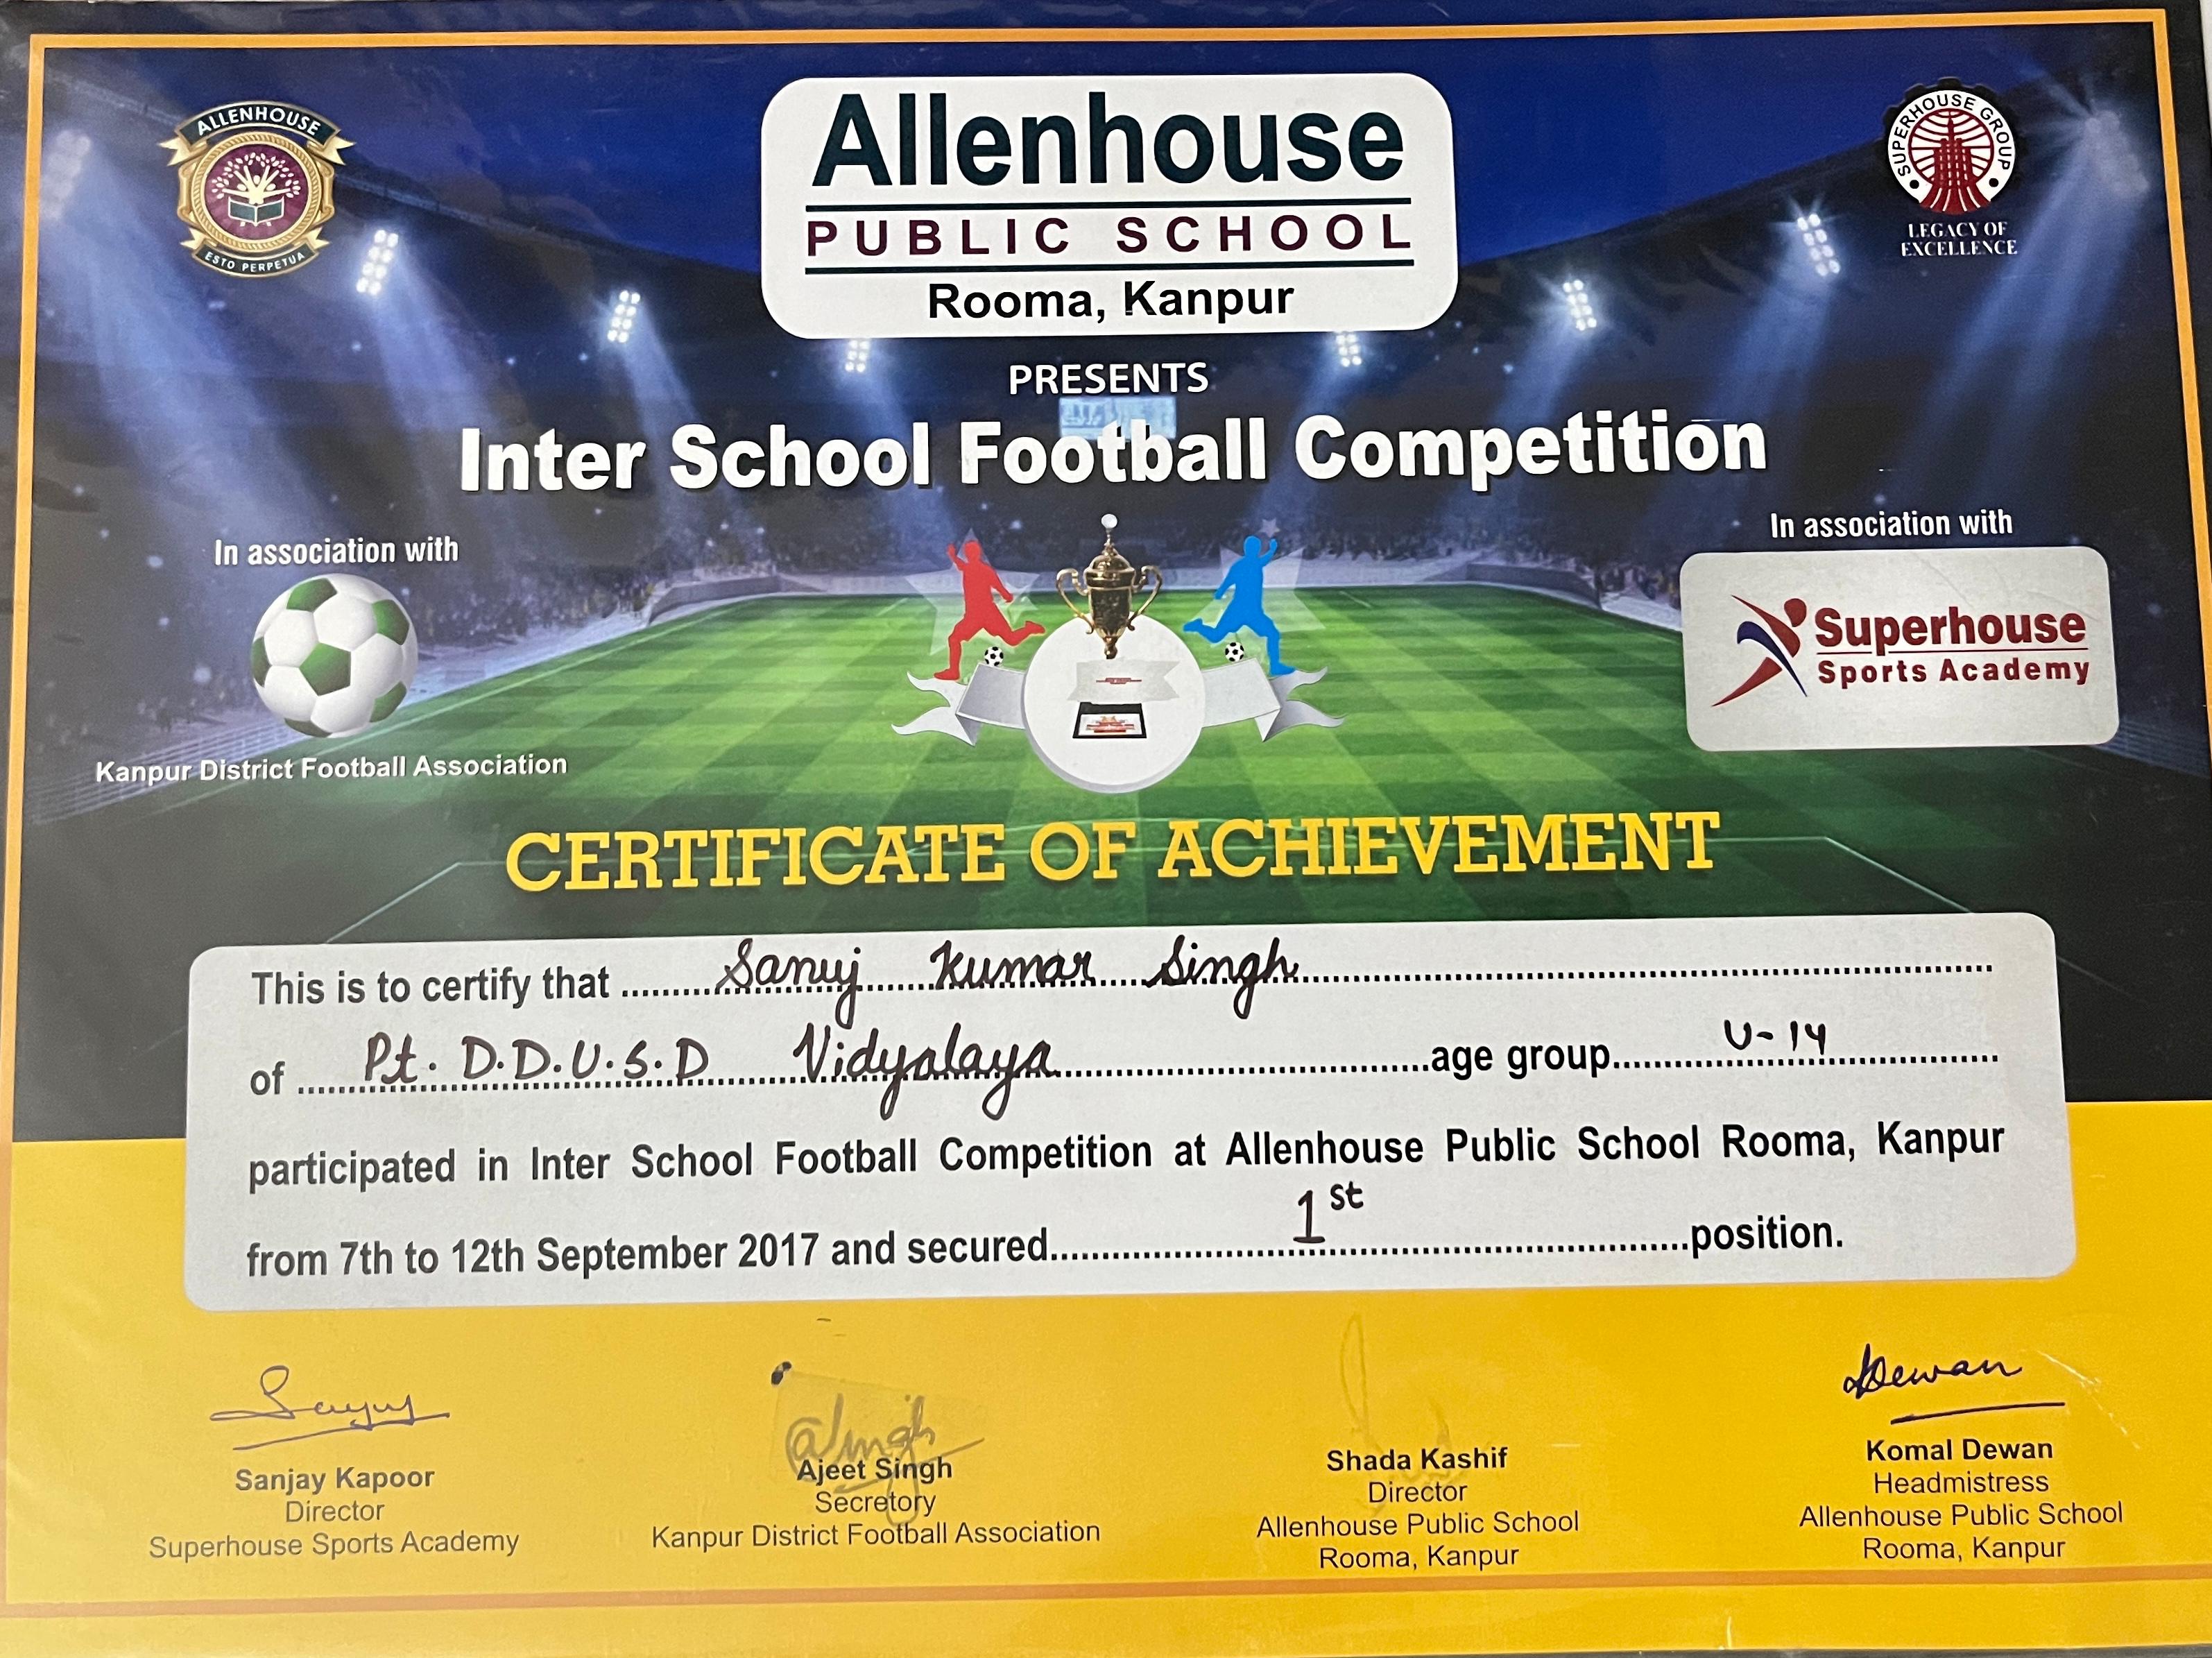 ALLENHOUSE
ESTO PERPETUA
Allenhouse
PUBLIC SCHOOL
Rooma, Kanpur
SUPERHOUSE GROUP
LEGACY OF
EXCELLENCE
PRESENTS
Inter School Football Competition
In association with
Kanpur District Football Association
In association with
Superhouse
Sports Academy
CERTIFICATE OF ACHIEVEMENT
This is to certify that Sanuj Kumar Singh
of Pt. D.D.U.S.D Vidyalaya age group U-14
participated in Inter School Football Competition at Allenhouse Public School Rooma, Kanpur
from 7th to 12th September 2017 and secured 1st position.
Dewan
Sanjay Kapoor
Director
Superhouse Sports Academy
Ajeet Singh
Secretory
Kanpur District Football Association
Shada Kashif
Director
Allenhouse Public School
Rooma, Kanpur
Komal Dewan
Headmistress
Allenhouse Public School
Rooma, Kanpur